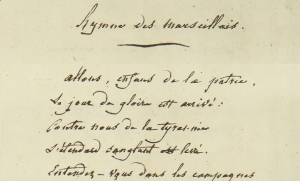 hymne des marseillais.
allons, enfans de la patrie,
le jour de gloire est arrivé:
Contre nous de la tyrannie
l'étendard sanglant est levé.
Entendez-vous dans les campagnes